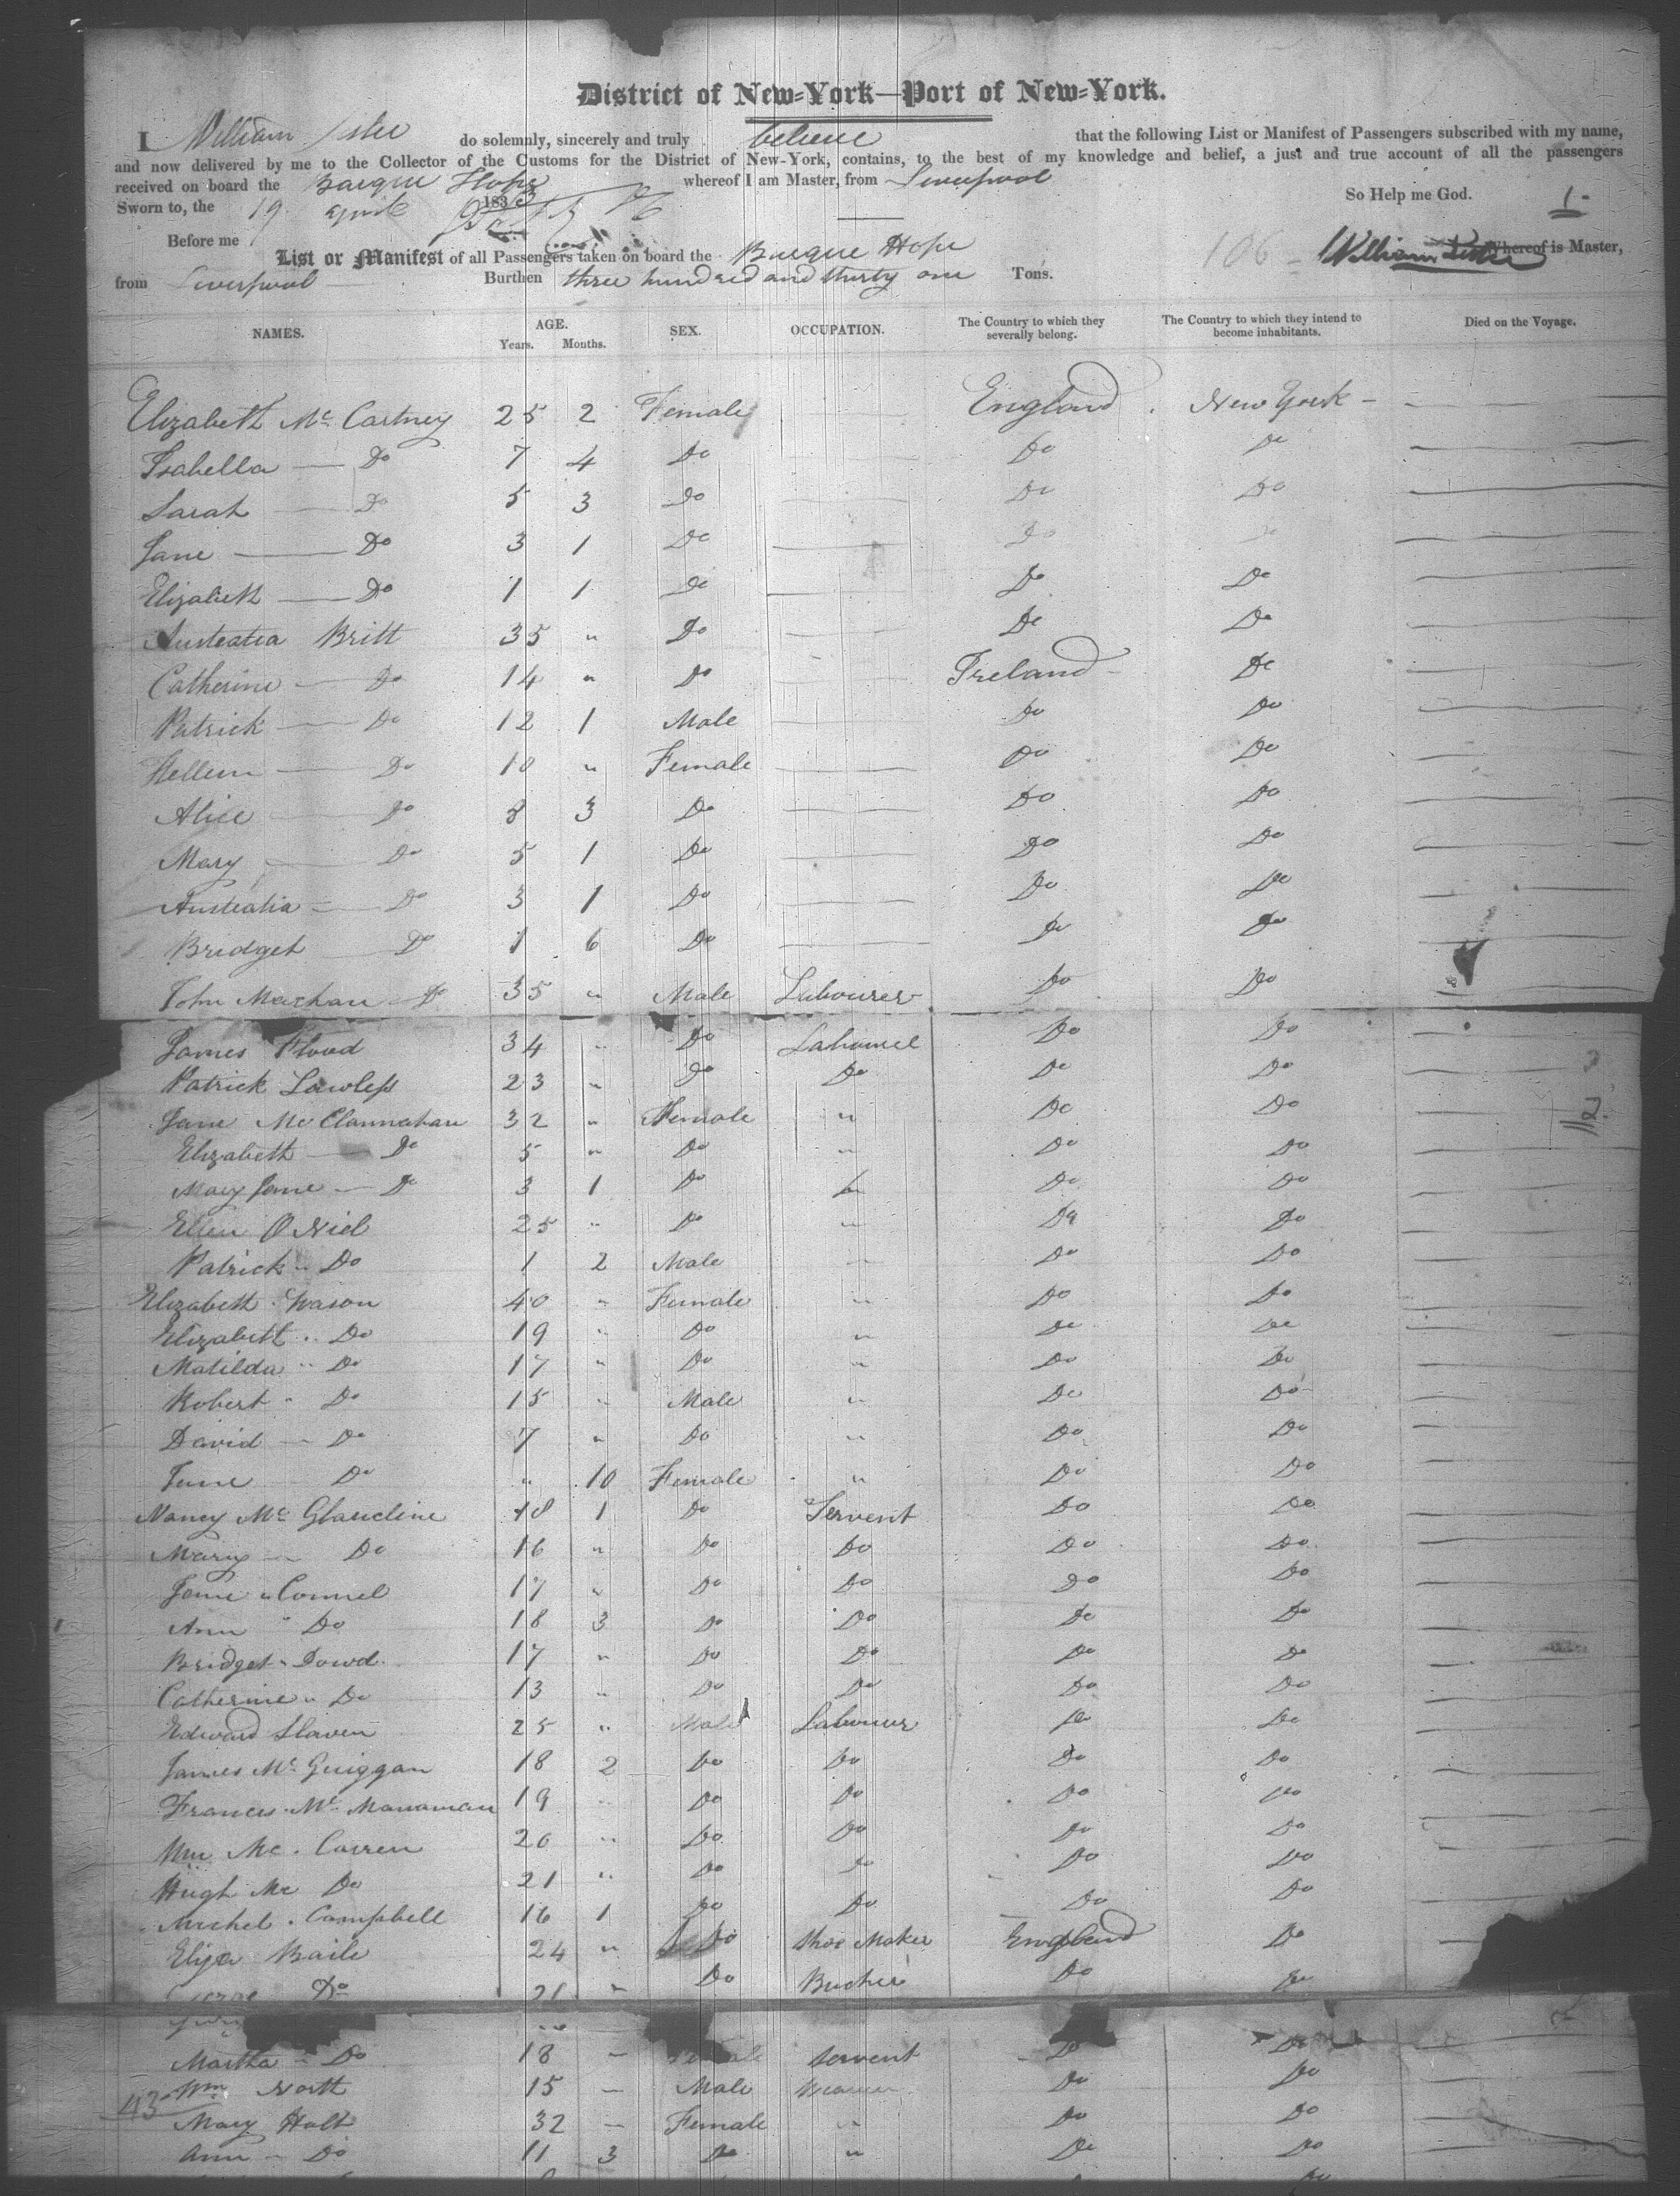 District of New-York—Port of New-York.
I William do solemnly, sincerely and truly believe that the following List or Manifest of Passengers subscribed with my name,
and now delivered by me to the Collector of the Customs for the District of New-York, contains, to the best of my knowledge and belief, a just and true account of all the passengers
received on board the Barque Hope whereof I am Master, from Liverpool
Sworn to, the 19 April 183 So Help me God. 1-
Before me
List or Manifest of all Passengers taken on board the Barque Hope 106 William Whereof is Master,
from Liverpool Burthen three hundred and thirty one Tons.
NAMES. AGE. Years. Months. SEX. OCCUPATION. The Country to which they severally belong. The Country to which they intend to become inhabitants. Died on the Voyage.
Elizabeth Mc Cartney 25 2 Female England New York -
Isabella — Do 7 4 Do Do Do
Sarah — Do 5 3 Do Do Do
Jane — Do 3 1 Do Do Do
Elizabeth — Do 1 1 Do Do Do
Britt 35 " Do Do Do
Catherine — Do 14 " Do Ireland Do
Patrick — Do 12 1 Male Do Do
Hellen — Do 10 " Female Do Do
Alice — Do 8 3 Do Do Do
Mary — Do 5 1 Do Do Do
— Do 3 1 Do Do Do
Bridget — Do 1 6 Do Do Do
John Machan Do 35 " Male Labourer Do Do
James Flood 34 " Do Labourer Do Do
Patrick Lawless 23 " Do Do Do Do
Jane Mc Clannahan 32 " Female " Do Do 112
Elizabeth — Do 5 " Do " Do Do
Mary Jane — Do 3 1 Do " Do Do
Ellen O Niel 25 " Do " Do Do
Patrick " Do 1 2 Male " Do Do
Elizabeth Wason 40 " Female " Do Do
Elizabeth " Do 19 " Do " Do Do
Matilda " Do 17 " Do " Do Do
Robert " Do 15 " Male " Do Do
David — Do 7 " Do " Do Do
Jane Do " 10 Female " Do Do
Nancy Mc Glaucline 18 1 Do Servent Do Do
Mary — Do 16 " Do Do Do Do
Jane " Connel 17 " Do Do Do Do
Ann " Do 18 3 Do Do Do Do
Bridget " Dowd 17 " Do Do Do Do
Catherine " Do 13 " Do Do Do Do
Edward Slaven 25 " Male Labourer Do Do
James Mc Guiggan 18 2 Do Do Do Do
Frances Mc Manaman 19 " Do Do Do Do
Wm Mc. Carren 20 " Do Do Do Do
Hugh Mc Do 21 " Do Do Do Do
Michel. Campbell 16 1 Do Do Do Do
Elija Baile 24 " Do Shoe Maker England Do
George Do 21 " Do Bucher Do Do
Martha " Do 18 — Female Servent Do Do
Wm North 15 — Male Do Do
43
Mary Halt 32 — Female " Do Do
Ann " Do 11 3 Do " Do Do